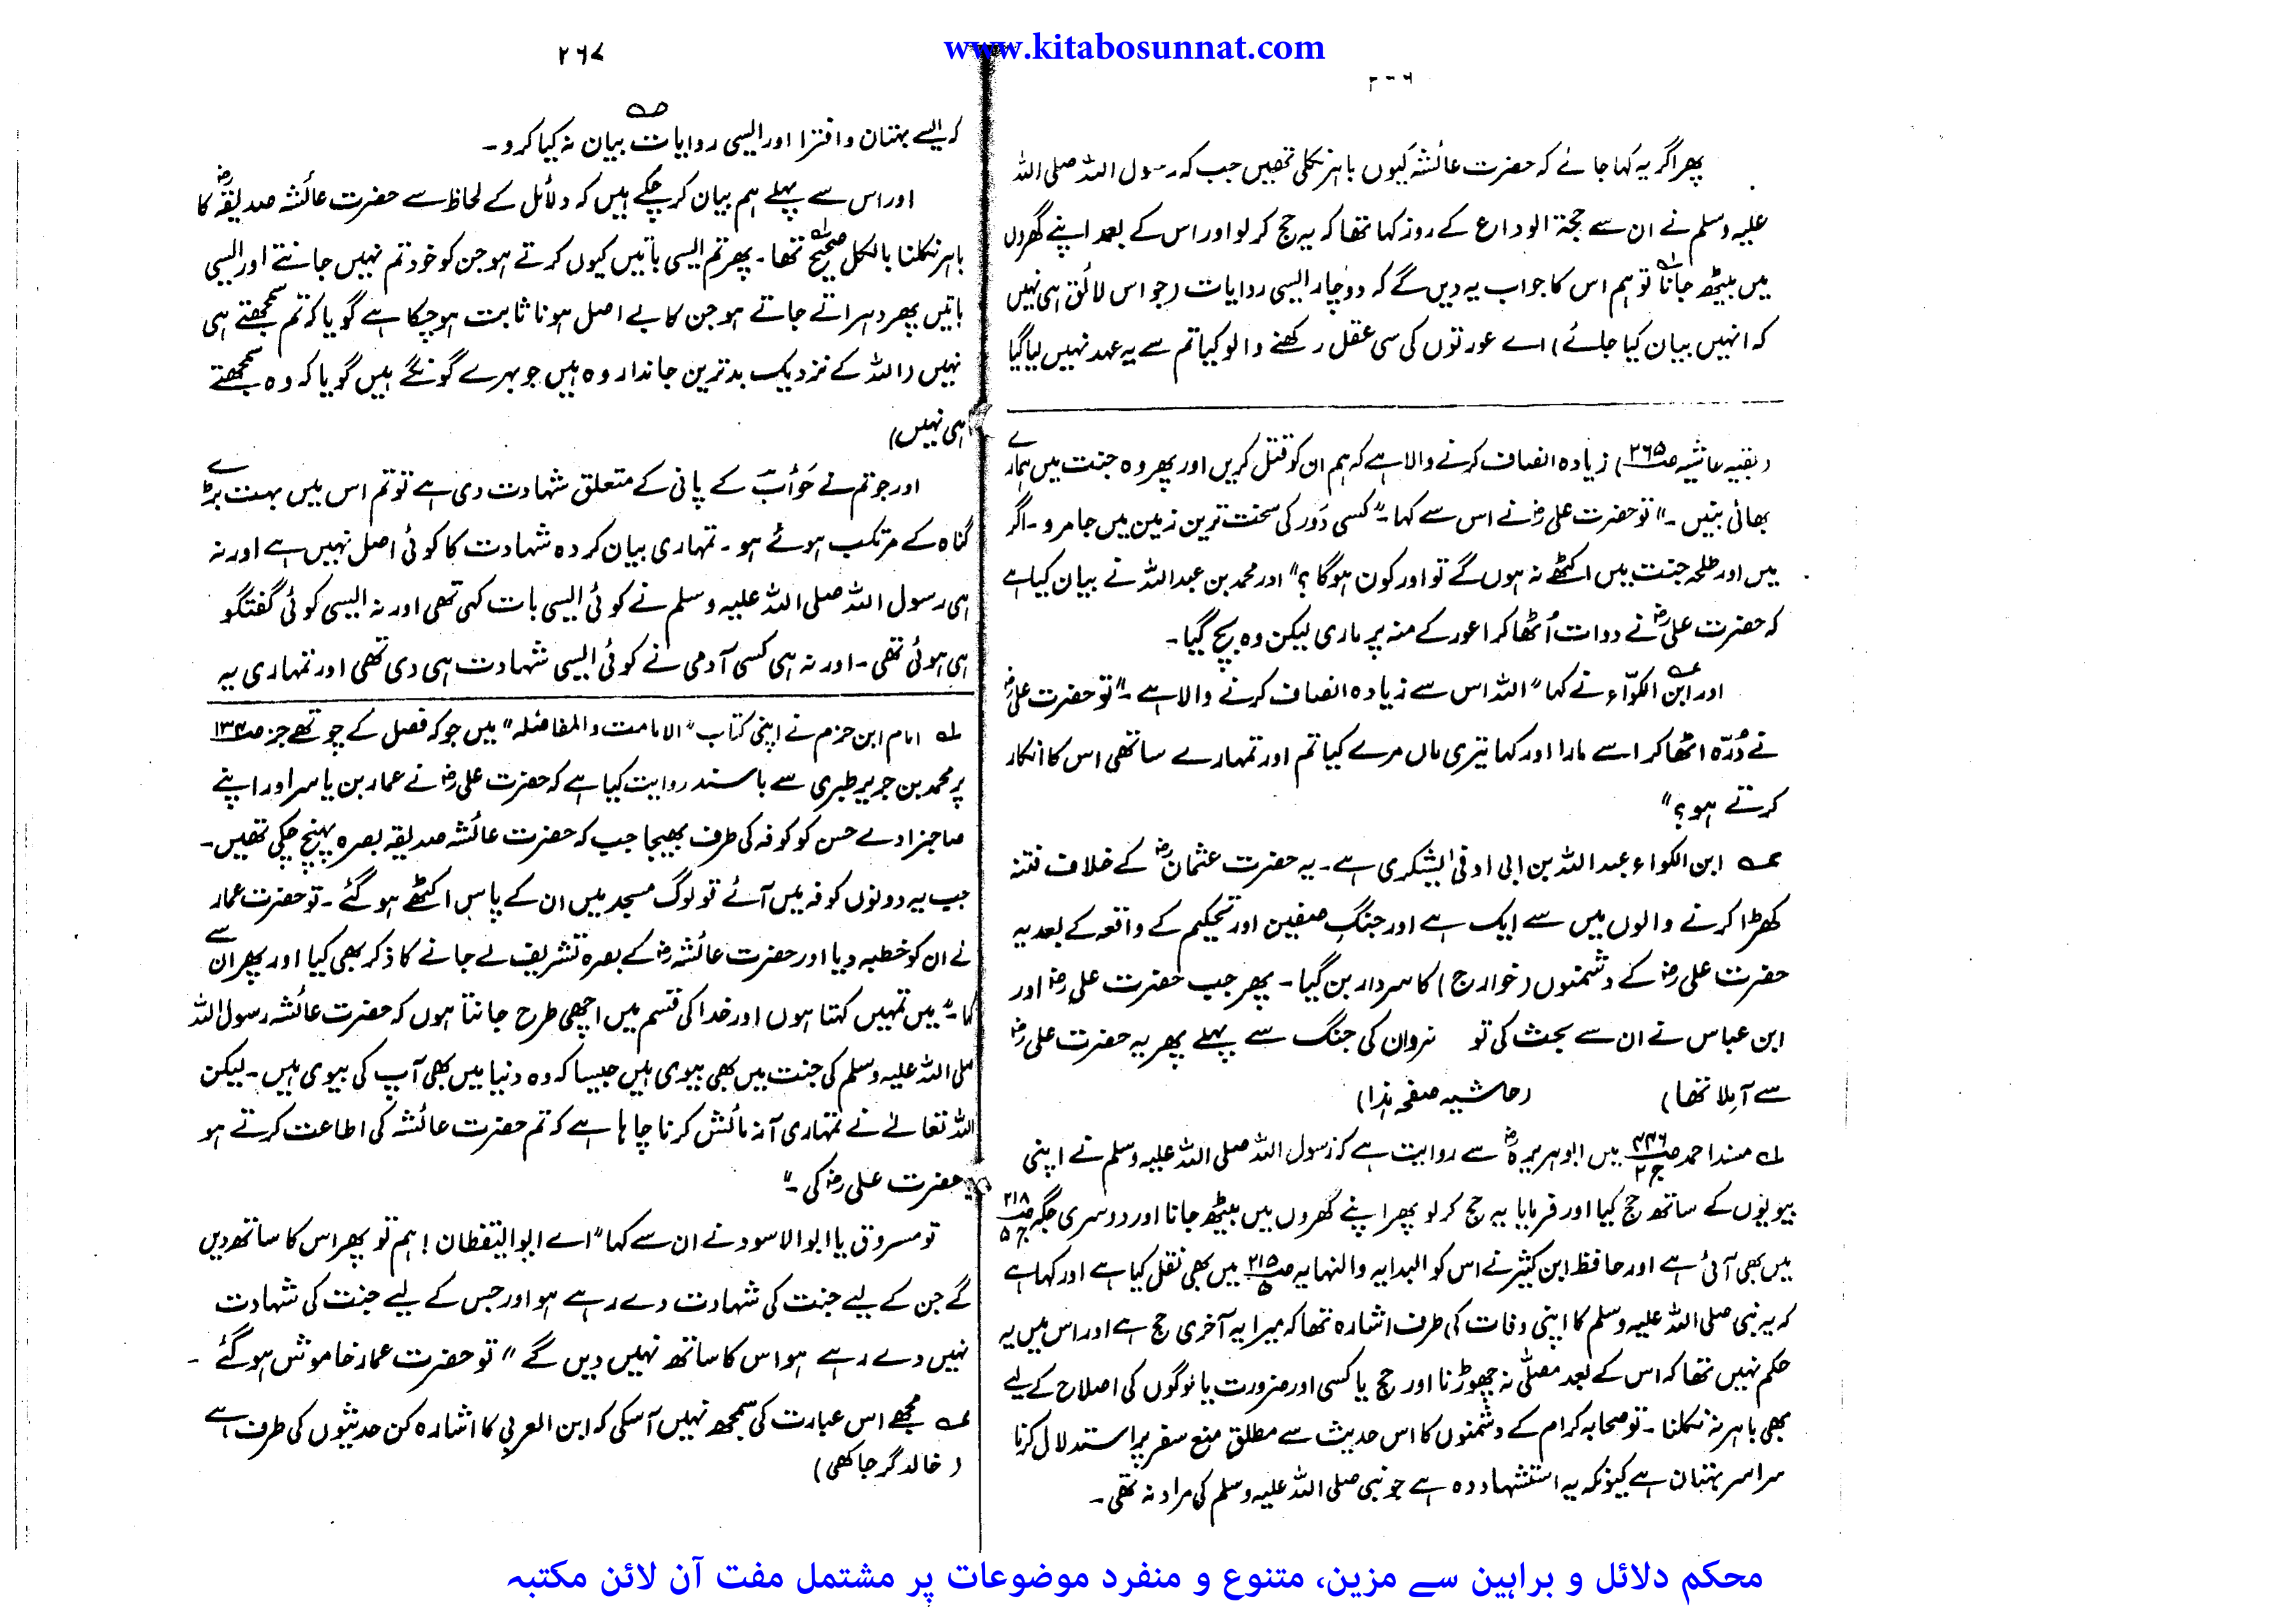 www.kitabosunnat.com
پھر اگر یہ کہا جائے کہ حضرت عائشہ کیوں باہر نکلی تھیں جب کہ رسول اللہ صلی اللہ
علیہ وسلم نے ان سے حجۃ الوداع کے روز کہا تھا کہ یہ حج کر لو اور اس کے بعد اپنے گھروں
میں بیٹھ جانا ۱؎ تو ہم اس کا جواب یہ دیں گے کہ دو چار ایسی روایات (جو اس لائق ہی نہیں
کہ انہیں بیان کیا جائے) اے عورتوں کی سی عقل رکھنے والو کیا تم سے یہ عہد نہیں لیا گیا
(بقیہ حاشیہ صـ ۲۶۵) زیادہ انصاف کرنے والا ہے کہ ہم ان کو قتل کریں اور پھر وہ جنت میں ہمارے
بھائی بنیں ۔" تو حضرت علیؓ نے اس سے کہا ۔" کسی دُور کی سخت ترین زمین میں جا مرو ۔ اگر
میں اور طلحہ جنت میں اکٹھے نہ ہوں گے تو اور کون ہوگا ؟" اور محمد بن عبداللہ نے بیان کیا ہے
کہ حضرت علیؓ نے دوات اُٹھا کر اعور کے منہ پر ماری لیکن وہ بچ گیا ۔
اور ابن الکوّاء ۲؎ نے کہا "اللہ اس سے زیادہ انصاف کرنے والا ہے ۔" تو حضرت علیؓ
نے دُرّہ اٹھا کر اسے مارا اور کہا تیری ماں مرے کیا تم اور تمہارے ساتھی اس کا انکار
کرتے ہو ؟"
۲؎ ابن الکواء عبد اللہ بن ابی اوفی الیشکری ہے ۔ یہ حضرت عثمانؓ کے خلاف فتنہ
کھڑا کرنے والوں میں سے ایک ہے اور جنگِ صفین اور تحکیم کے واقعہ کے بعد یہ
حضرت علیؓ کے دشمنوں (خوارج) کا سردار بن گیا ۔ پھر جب حضرت علیؓ اور
ابن عباس نے ان سے بحث کی تو نہروان کی جنگ سے پہلے پھر یہ حضرت علیؓ
سے آملا تھا) (حاشیہ صفحہ ہٰذا)
۱؎ مسند احمد صـ ۴۴۶ ج ۲ میں ابوہریرہؓ سے روایت ہے کہ رسول اللہ صلی اللہ علیہ وسلم نے اپنی
بیویوں کے ساتھ حج کیا اور فرمایا یہ حج کر لو پھر اپنے گھروں میں بیٹھ جانا اور دوسری جگہ صـ ۲۱۸ ج ۵
میں بھی آئی ہے اور حافظ ابن کثیر نے اس کو البدایہ والنہایہ صـ ۲۱۵ ۵ میں بھی نقل کیا ہے اور کہا ہے
کہ یہ نبی صلی اللہ علیہ وسلم کا اپنی وفات کی طرف اشارہ تھا کہ میرا یہ آخری حج ہے اور اس میں یہ
حکم نہیں تھا کہ اس کے بعد مصلّٰی نہ چھوڑنا اور حج یا کسی اور ضرورت یا لوگوں کی اصلاح کے لیے
بھی باہر نہ نکلنا ۔ تو صحابہ کرام کے دشمنوں کا اس حدیث سے مطلق منع سفر پر استدلال کرنا
سراسر بہتان ہے کیونکہ یہ استشہاد وہ ہے جو نبی صلی اللہ علیہ وسلم کی مراد نہ تھی ۔
۲۶۷
کہ ایسے بہتان و افترا اور ایسی روایات بیان نہ کیا کرو ۔
اور اس سے پہلے ہم بیان کر چکے ہیں کہ دلائل کے لحاظ سے حضرت عائشہ صدیقہؓ کا
باہر نکلنا بالکل صحیح ۱؎ تھا ۔ پھر تم ایسی باتیں کیوں کرتے ہو جن کو خود تم نہیں جانتے اور ایسی
باتیں پھر دہراتے جاتے ہو جن کا بے اصل ہونا ثابت ہو چکا ہے گویا کہ تم سمجھتے ہی
نہیں (اللہ کے نزدیک بدترین جاندار وہ ہیں جو بہرے گونگے ہیں گویا کہ وہ سمجھتے
ہی نہیں)
اور جو تم نے حَوأب کے پانی کے متعلق شہادت دی ہے تو تم اس میں بہت بڑے
گناہ کے مرتکب ہوئے ہو ۔ تمہاری بیان کردہ شہادت کا کوئی اصل نہیں ہے اور نہ
ہی رسول اللہ صلی اللہ علیہ وسلم نے کوئی ایسی بات کہی تھی اور نہ ایسی کوئی گفتگو
ہی ہوئی تھی ۔ اور نہ ہی کسی آدمی نے کوئی ایسی شہادت ہی دی تھی اور تمہاری یہ
۱؎ امام ابن حزم نے اپنی کتاب "الامامت والمفاضلہ" میں جو کہ فصل کے چوتھے جز صـ ۱۳۴
پر محمد بن جریر طبری سے باسند روایت کیا ہے کہ حضرت علیؓ نے عمار بن یاسر اور اپنے
صاحبزادے حسن کو کوفہ کی طرف بھیجا جب کہ حضرت عائشہ صدیقہ بصرہ پہنچ چکی تھیں ۔
جب یہ دونوں کوفہ میں آئے تو لوگ مسجد میں ان کے پاس اکٹھے ہو گئے ۔ تو حضرت عمار
نے ان کو خطبہ دیا اور حضرت عائشہؓ کے بصرہ تشریف لے جانے کا ذکر بھی کیا اور پھر ان سے
کہا ۔" میں تمہیں کہتا ہوں اور خدا کی قسم میں اچھی طرح جانتا ہوں کہ حضرت عائشہ رسول اللہ
صلی اللہ علیہ وسلم کی جنت میں بھی بیوی ہیں جیسا کہ وہ دنیا میں بھی آپ کی بیوی ہیں ۔ لیکن
اللہ تعالےٰ نے تمہاری آزمائش کرنا چاہا ہے کہ تم حضرت عائشہ کی اطاعت کرتے ہو
یا حضرت علیؓ کی ۔"
تو مسروق یا ابوالاسود نے ان سے کہا "اے ابوالیقظان ! ہم تو پھر اس کا ساتھ دیں
گے جن کے لیے جنت کی شہادت دے رہے ہو اور جس کے لیے جنت کی شہادت
نہیں دے رہے ہو اس کا ساتھ نہیں دیں گے" تو حضرت عمار خاموش ہو گئے ۔
۲؎ مجھے اس عبارت کی سمجھ نہیں آسکی کہ ابن العربی کا اشارہ کن حدیثوں کی طرف ہے
(خالد گرجاکھی)
محکم دلائل و براہین سے مزین، متنوع و منفرد موضوعات پر مشتمل مفت آن لائن مکتبہ